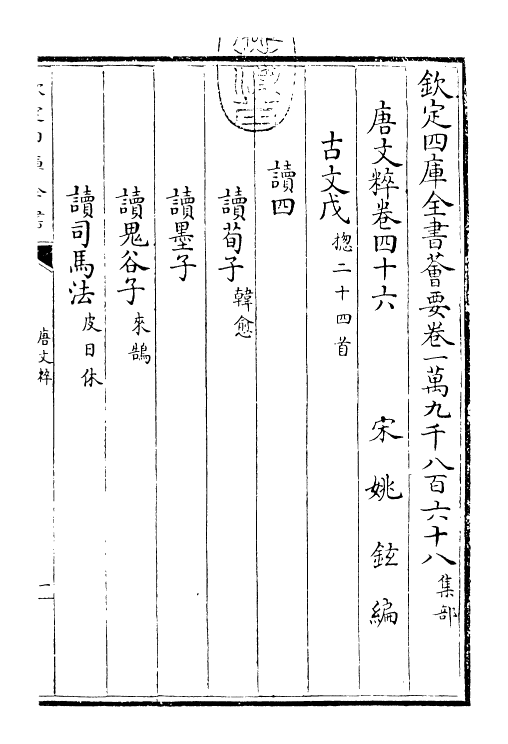 欽定四庫全書薈要卷一萬九千八百六十八 集部
唐文粹卷四十六 宋 姚 鉉 編
古文戊 摠二十四首
讀四
讀荀子 韓愈
讀墨子
讀鬼谷子 來鵠
讀司馬法 皮日休
唐文粹